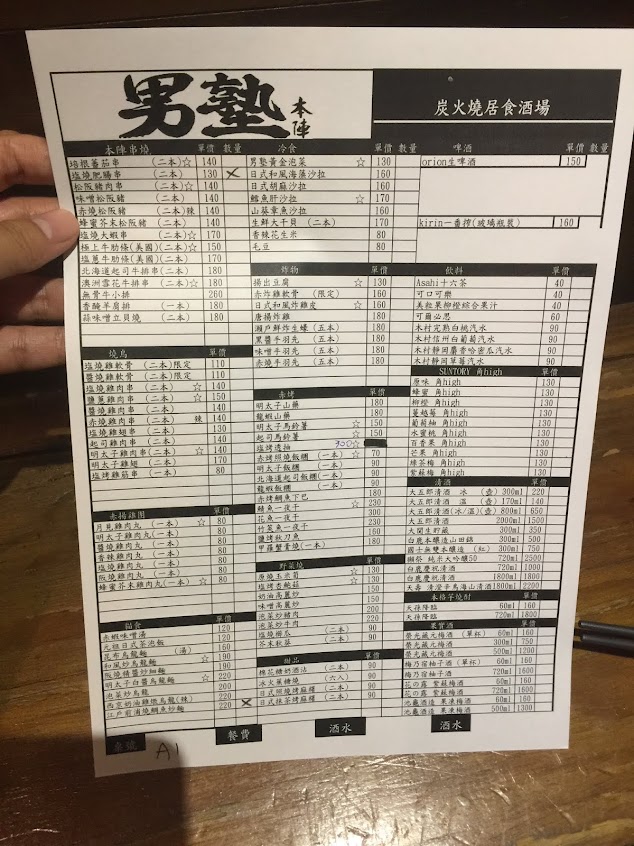 男塾 本陣
炭火燒居食酒場
本陣串燒 單價 數量
培根蕃茄串 (二本)☆ 140
塩燒肥腸串 (二本) 130 ×
松阪豬肉串 (二本)☆ 140
味噌松阪豬 (二本) 140
赤燒松阪豬 (二本)辣 140
蜂蜜芥末松阪豬 (二本) 140
塩燒大蝦串 (二本)☆ 170
極上牛肋條(美國)(二本)☆ 150
塩蔥牛肋條(美國)(二本) 170
北海道起司牛排串(二本) 180
澳洲雪花牛排串 (二本)☆ 180
無骨牛小排 260
香醃羊肩排 (一本) 180
蒜味噌立貝燒 (二本) 180
燒鳥 單價
塩燒雞軟骨 (二本)限定 110
醬燒雞軟骨 (二本)限定 110
塩燒雞肉串 (二本) ☆ 140
鹽蔥雞肉串 (二本) ☆ 150
醬燒雞肉串 (二本) 140
赤燒雞肉串 (二本) 辣 140
塩燒雞翅串 (二本) 130
起司雞肉串 (二本) 140
明太子雞肉串(二本) ☆ 140
明太子雞翅 (二本) 170
塩烤雞筋串 (一本) 80
赤揚雞團 單價
月見雞肉丸 (一本) ☆ 80
明太子雞肉丸(一本) 80
醬燒雞肉丸 (一本) 80
香辣雞肉丸 (一本) 80
鹽燒雞肉丸 (一本) 80
阪燒雞肉丸 (一本) 80
蜂蜜芥末雞肉丸(一本) ☆ 80
單價
赤蝦味噌湯 120
元祖日式茶泡飯 120
昆布烏龍麵 (湯) 160
和風炒烏龍麵 ☆ 190
阪燒精醬炒細麵 220
明太子白醬烏龍麵 ☆ 200
泡菜炒烏龍 200
西京奶油雞燉烏龍(辣) 220
江戶前浦燒鯛魚炒麵 220
桌號 A1
冷食 單價 數量
男塾黃金泡菜 ☆ 130
日式和風海藻沙拉 160
日式胡麻沙拉 160
鱈魚肝沙拉 ☆ 170
山葵章魚沙拉 160
生鮮大干貝 (二本) 170
香辣花生米 80
毛豆 80
炸物 單價
揚出豆腐 ☆ 130
赤炸雞軟骨 (限定) 160
日式和風炸雞皮 ☆ 160
唐揚炸雞 180
瀨戶鮮炸生蠔 (五本) 180
黑醬手羽先 (五本) 180
味噌手羽先 (五本) 180
赤燒手羽先 (五本) 180
赤烤 單價
明太子山藥 180
龍蝦山藥 180
明太子馬鈴薯 ☆ 150
起司馬鈴薯 ☆ 150
塩烤透抽 300☆
赤烤照燒飯糰 (一本) ☆ 70
明太子飯糰 (一本) 90
北海道起司飯糰(一本) 90
龍蝦飯糰 (一本) 90
赤烤鯛魚下巴 180
鯖魚一夜干 ☆ 230
花魚一夜干 300
竹筴魚一夜干 230
鹽烤秋刀魚 160
甲羅蟹膏燒(一本) 180
野菜燒 單價
原燒玉米筍 ☆ 130
塩烤杏鮑菇 ☆ 130
奶油高麗炒 150
味噌高麗炒 150
泡菜炒豬肉 220
泡菜炒牛肉 220
塩燒櫛瓜 (二本) 90
芥末秋葵 (二本) 90
甜品 單價
棉花糖奶酒沾 (二本) 90
冰火菓糖燒 (六入) 90
日式照燒烤麻糬 (二本) 90
× 日式抹茶烤麻糬 (二本) 90
餐費
酒水
啤酒 單價 數量
orion生啤酒 150
kirin一番搾(玻璃瓶裝) 160
飲料 單價
Asahi十六茶 40
可口可樂 40
美粒果柳橙綜合果汁 40
可爾必思 60
木村完熟白桃汽水 90
木村信州白葡萄汽水 90
木村靜岡麝香哈密瓜汽水 90
木村靜岡草莓汽水 90
SUNTORY 角high
原味 角high 130
蜂蜜 角high 130
柳橙 角high 130
蔓越莓 角high 130
葡萄柚 角high 130
水蜜桃 角high 130
百香果 角high 130
芒果 角high 130
綠茶梅 角high 130
紫蘇梅 角high 130
清酒 單價
大五郎清酒 冰 (壺) 300ml 220
大五郎清酒 溫 (壺) 170ml 140
大五郎清酒(冰/溫)(壺) 800ml 650
大五郎清酒 2000ml 1500
大關生貯藏 300ml 350
白鹿本釀造山田錦 300ml 500
國士無雙本釀造 (紅) 300ml 750
獺祭 純米大吟釀50 720ml 2500
白鹿慶祝清酒 720ml 1000
白鹿慶祝清酒 1800ml 1800
天壽 清澄乎鳥海山清酒1800ml 2200
本格芋燒酎 單價
天孫降臨 60ml 160
天孫降臨 720ml 1600
果實酒 單價
榮光藏元梅酒 (單杯) 60ml 160
榮光藏元梅酒 300ml 750
榮光藏元梅酒 500ml 1200
梅乃宿柚子酒 (單杯) 60ml 160
梅乃宿柚子酒 720ml 1600
花の露 紫蘇梅酒 60ml 160
花の露 紫蘇梅酒 720ml 1600
池龜酒造 果凍梅酒 60ml 160
池龜酒造 果凍梅酒 500ml 1300
酒水